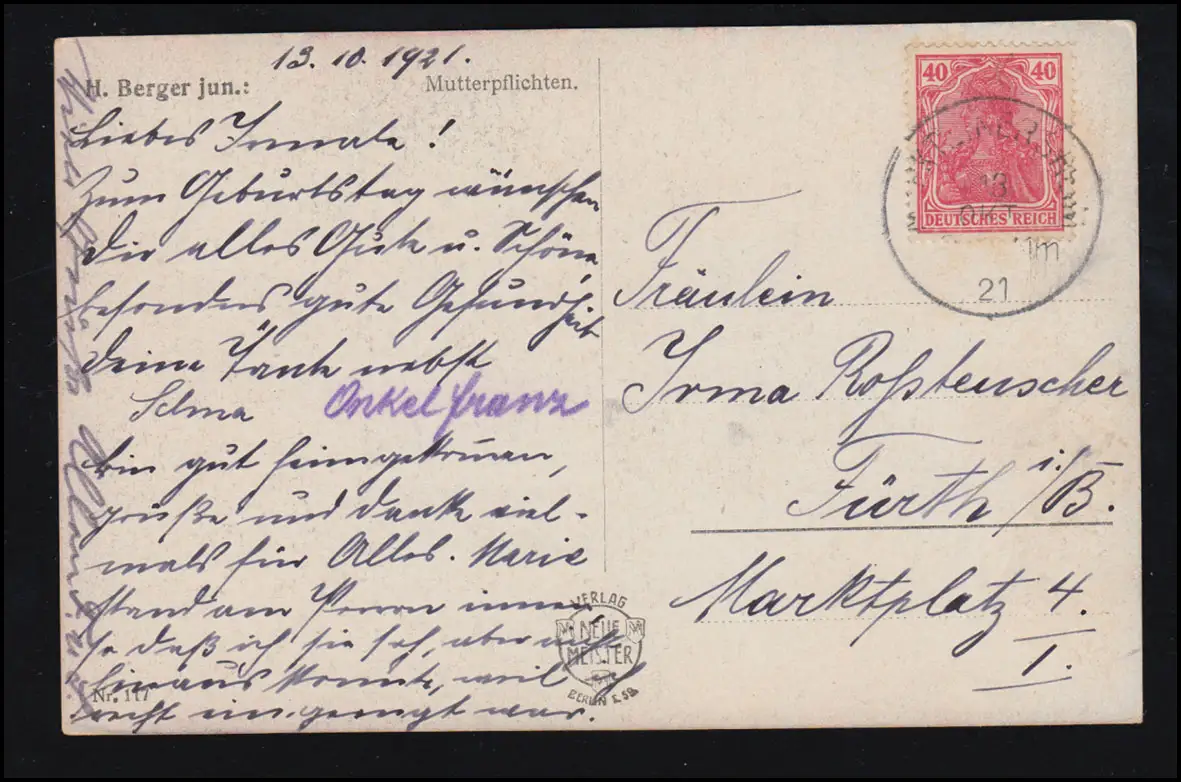 13. 10. 1921.
H. Berger jun.:
Mutterpflichten.
Liebes Irmale!
Zum Geburtstag wünschen
Dir alles Gute u. Schöne
besonders gute Gesundheit
Deine Tante nebst
Selma Onkel Franz
bin gut heimgekommen,
grüße und danke viel-
mals für Alles. Marie
stand am Perron innen
so daß ich sie sah, aber nicht
hinaus konnte, weil
recht eingeengt war.
Nr. 117
VERLAG
NEUE
MEISTER
BERLIN E. 59
40 40
DEUTSCHES REICH
13
OKT
21
Fräulein
Irma Roßteuscher
Fürth i/B.
Marktplatz 4.
I.